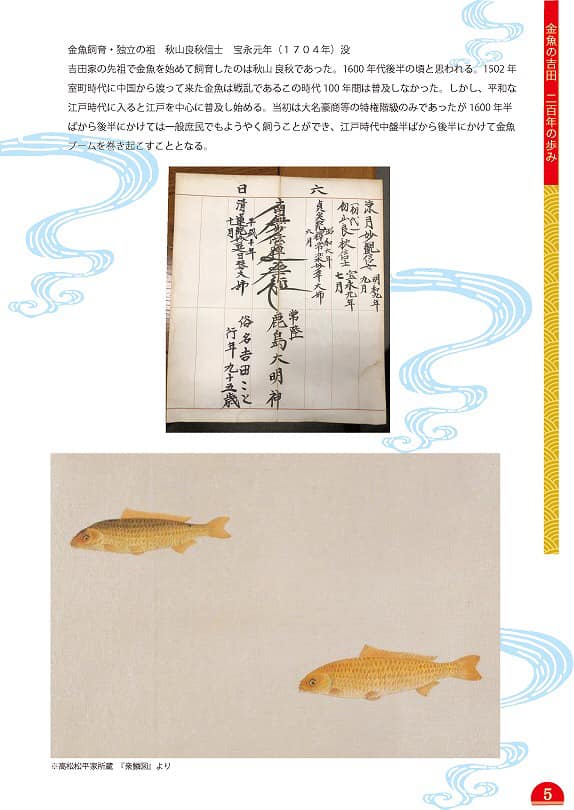 金魚の吉田　二百年の歩み
金魚飼育・独立の祖　秋山良秋信士　宝永元年（１７０４年）没
吉田家の先祖で金魚を始めて飼育したのは秋山 良秋であった。1600 年代後半の頃と思われる。1502 年
室町時代に中国から渡って来た金魚は戦乱であるこの時代 100 年間は普及しなかった。しかし、平和な
江戸時代に入ると江戸を中心に普及し始める。当初は大名豪商等の特権階級のみであったが 1600 年半
ばから後半にかけては一般庶民でもようやく飼うことができ、江戸時代中盤半ばから後半にかけて金魚
ブームを巻き起こすこととなる。
六
日
涼月妙観信女
九月
（初代）
良秋信士
宝永元年
七月
六月
常陸
鹿島大明神
平成十年
十月
俗名吉田こと
行年九十五歳
※高松松平家所蔵　『衆鱗図』より
5